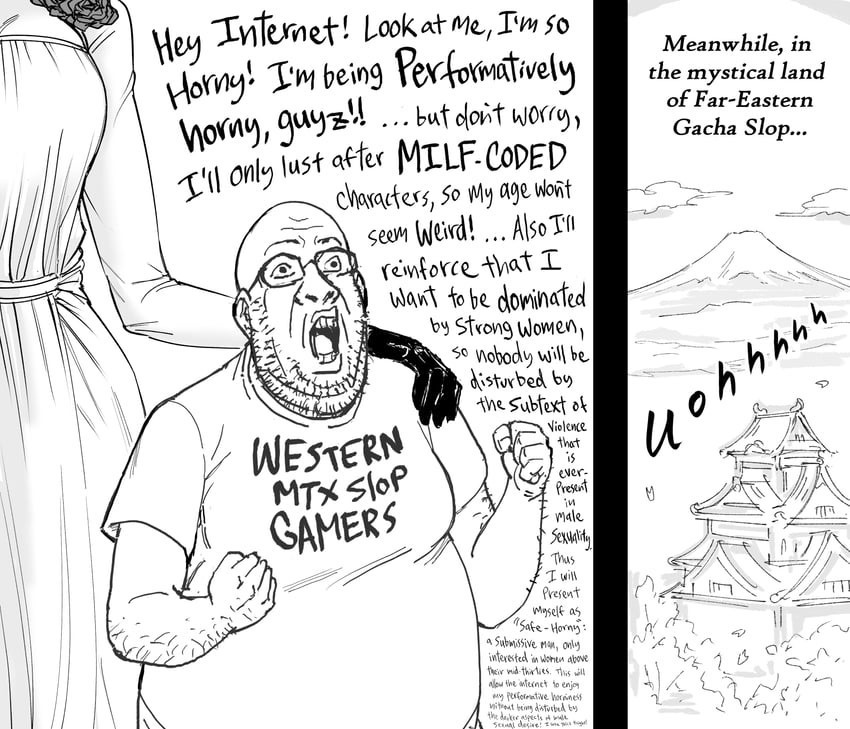 Hey Internet! Look at Me, I'm so
Horny! I'm being Performatively
horny, guyz!! ... but don't worry,
I'll only lust after MILF-CODED
characters, so my age won't
seem Weird! ... Also I'll
reinforce that I
want to be dominated
by Strong Women,
so nobody will be
disturbed by
the Subtext of
Violence
that
is
ever-
Present
in
male
Sexuality.
Thus
I will
Present
myself as
"Safe-Horny":
a Submissive Man, only
interested in Women above
their mid-thirties. This will
allow the internet to enjoy
my performative horniness
without being disturbed by
the darker aspects of male
Sexual desire!
WESTERN
MTX SLOP
GAMERS
Meanwhile, in
the mystical land
of Far-Eastern
Gacha Slop...
uohhhhh